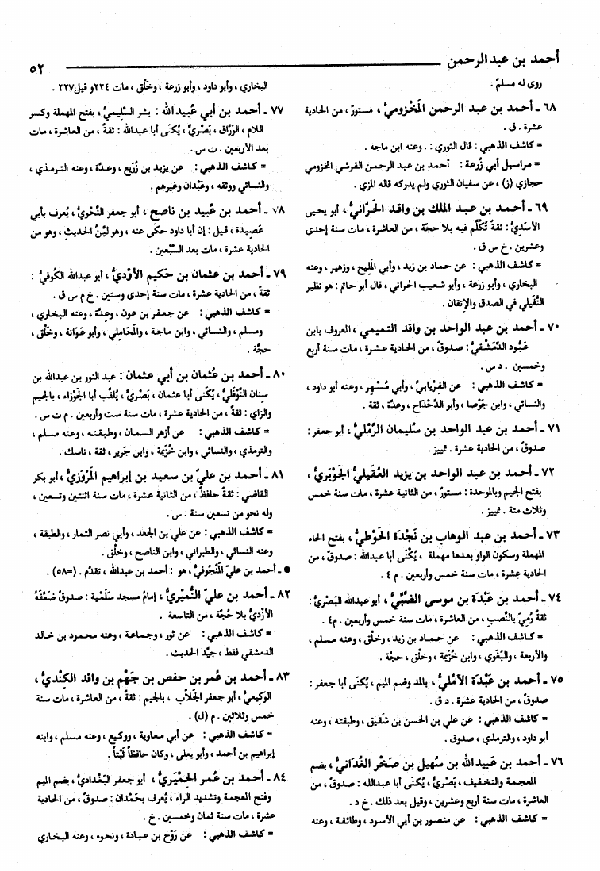 أحمد بن عبدالرحمن
٥٢
روى له مسلم .
٦٨ ـ أحمد بن عبد الرحمن المَخْزوميُّ ، مستورٌ ، من الحادية
عشرة . ق .
= كاشف الذهبي : قال الثوري : . وعنه ابن ماجه .
= مراسيل أبي زُرعة : أحمد بن عبد الرحمن القرشي المخزومي
حجازي (ق) ، عن سفيان الثوري ولم يدركه قاله المزي .
٦٩ ـ أحمد بن عبد الملك بن واقد الحَرَّانيُّ ، أبو يحيى
الأسَدِيُّ : ثقةٌ تُكُلِّمَ فيه بلا حجة ، من العاشرة ، مات سنة إحدى
وعشرين . خ س ق .
= كاشف الذهبي : عن حماد بن زيد ، وأبي المليح ، وزهير ، وعنه
البخاري ، وأبو زرعة ، وأبو شعيب الحراني ، قال أبو حاتم : هو نظير
النُّفيلي في الصدق والإتقان .
٧٠ ـ أحمد بن عبد الواحد بن واقد التميمي ، العروف بابن
عَبُّود الدِّمَشْقيُّ : صدوقٌ ، من الحادية عشرة ، مات سنة أربع
وخمسين . د س .
= كاشف الذهبي : عن الفِريابي ، وأبي مُسْهِر ، وعنه أبو داود ،
والنسائي ، وابن جَوصا ، وأبو الدَّحْدَاح ، وعدة ، ثقة .
٧١ ـ أحمد بن عبد الواحد بن سليمان الرَّمْليُّ ، أبو جعفر :
صدوقٌ ، من الحادية عشرة . تمييز .
٧٢ ـ أحمد بن عبد الواحد بن يزيد العُقيليُّ الجَوْبَريُّ ،
بفتح الجيم وبالموحدة : مستورٌ ، من الثانية عشرة ، مات سنة خمس
وثلاث مئة . تمييز .
٧٣ ـ أحمد بن عبد الوهاب بن نَجْدَة الحَوْطيُّ ، بفتح الحاء
المهملة وسكون الواو بعدها مهملة ، يُكنى أبا عبدالله : صدوق ، من
الحادية عشرة ، مات سنة خمس وأربعين . م ٤ .
٧٤ ـ أحمد بن عَبْدَة بن موسى الضَّبِّيُّ ، أبو عبدالله البَصْريُّ :
ثقةٌ رُمِيَ بالنَّصْب ، من العاشرة ، مات سنة خمس وأربعين . م) .
= كاشف الذهبي : عن حماد بن زيد ، وخلق ، وعنه مسلم ،
والأربعة ، والبغوي ، وابن خُزيمة ، وخلق ، حجة .
٧٥ ـ أحمد بن عَبْدَة الآمُليُّ ، بالمد وضم الميم ، يُكنى أبا جعفر :
صدوقٌ ، من الحادية عشرة . د ق .
= كاشف الذهبي : عن علي بن الحسن بن شقيق ، وطبقته ، وعنه
أبو داود ، والترمذي ، صدوق .
٧٦ ـ أحمد بن عبيدالله بن سُهيل بن صَخْر الغُدَانيُّ ، بضم
المعجمة والتخفيف ، بَصْريٌّ ، يُكنى أبا عبدالله : صدوقٌ ، من
العاشرة ، مات سنة أربع وعشرين ، وقيل بعد ذلك . خ د .
= كاشف الذهبي : عن منصور بن أبي الأسود ، وطائفة ، وعنه
البخاري ، وأبو داود ، وأبو زرعة ، وخلق ، مات ٢٢٤ و قيل ٢٢٧ .
٧٧ ـ أحمد بن أبي عبيدالله : بشر السَّليميُّ ، بفتح المهملة وكسر
اللام ، الورَّاق ، بَصْريٌّ ، يُكنى أبا عبدالله : ثقةٌ ، من العاشرة ، مات
بعد الأربعين . ت س .
= كاشف الذهبي : عن يزيد بن زُريع ، وعدة ، وعنه الترمذي ،
والنسائي ووثقه ، وعبْدان وغيرهم .
٧٨ ـ أحمد بن عبيد بن ناصح ، أبو جعفر النَّحْويُّ ، يُعرف بأبي
عَصِيدة ، قيل : إن أبا داود حكى عنه ، وهو لَيِّنُ الحديث ، وهو من
الحادية عشرة ، مات بعد السَّبْعين .
٧٩ ـ أحمد بن عثمان بن حَكيم الأوْديُّ ، أبو عبدالله الكُوفيُّ :
ثقةٌ ، من الحادية عشرة ، مات سنة إحدى وستين . خ م س ق .
= كاشف الذهبي : عن جعفر بن عون ، وعدة ، وعنه البخاري ،
ومسلم ، والنسائي ، وابن ماجة ، والمحاملي ، وأبو عَوانة ، وخلق ،
حجة .
٨٠ ـ أحمد بن عُثمان بن أبي عثمان : عبد النور بن عبدالله بن
سنان النَّوْفَليُّ ، يُكْنَى أبا عثمان ، بَصْريٌّ ، يُلقب أبا الجَوزاء ، بالجيم
والزاي : ثقةٌ ، من الحادية عشرة ، مات سنة ست وأربعين . م ت س .
= كاشف الذهبي : عن أزهر السمان ، وطبقته ، وعنه مسلم ،
والترمذي ، والنسائي ، وابن خُزيمة ، وابن جرير ، ثقة ، ناسك .
٨١ ـ أحمد بن عليِّ بن سعيد بن إبراهيم المَرْوَزيُّ ، أبو بكر
القاضي : ثقةٌ حافظٌ ، من الثانية عشرة ، مات سنة اثنتين وتسعين ،
وله نحو من تسعين سنة . س .
= كاشف الذهبي : عن علي بن الجعد ، وأبي نصر التمار ، والطبقة ،
وعنه النسائي ، والطبراني ، وابن الناصح ، وخلق .
● ـ أحمد بن عليّ المَنْجُوفيُّ ، هو : أحمد بن عبدالله ، تقدَّم . (٥٨=) .
٨٢ ـ أحمد بن عليّ النُّمَيْريُّ ، إمامُ مسجد سَلَمْية : صدوقٌ ضَعَّفَهُ
الأزْديُّ بلا حُجَّة ، من التاسعة .
= كاشف الذهبي : عن ثور ، وجماعة ، وعنه محمود بن خالد
الدمشقي فقط ، جيّد الحديث .
٨٣ ـ أحمد بن عُمر بن حفص بن جَهْم بن واقد الكِنْديُّ ،
الوَكيعيُّ ، أبو جعفر الجَلّاب ، بالجيم : ثقةٌ ، من العاشرة ، مات سنة
خمس وثلاثين . م (ل) .
= كاشف الذهبي : عن أبي معاوية ، ووكيع ، وعنه مسلم ، وابنه
إبراهيم بن أحمد ، وأبو يعلى ، وكان حافظاً ثبتاً .
٨٤ ـ أحمد بن عُمر الحِمْيَريُّ ، أبو جعفر البَغْداديُّ ، بضم الميم
وفتح المعجمة وتشديد الراء ، يُعرف بحَمْدان : صدوقٌ ، من الحادية
عشرة ، مات سنة ثمان وخمسين . خ .
= كاشف الذهبي : عن رَوْح بن عبادة ، ونحوه ، وعنه البخاري